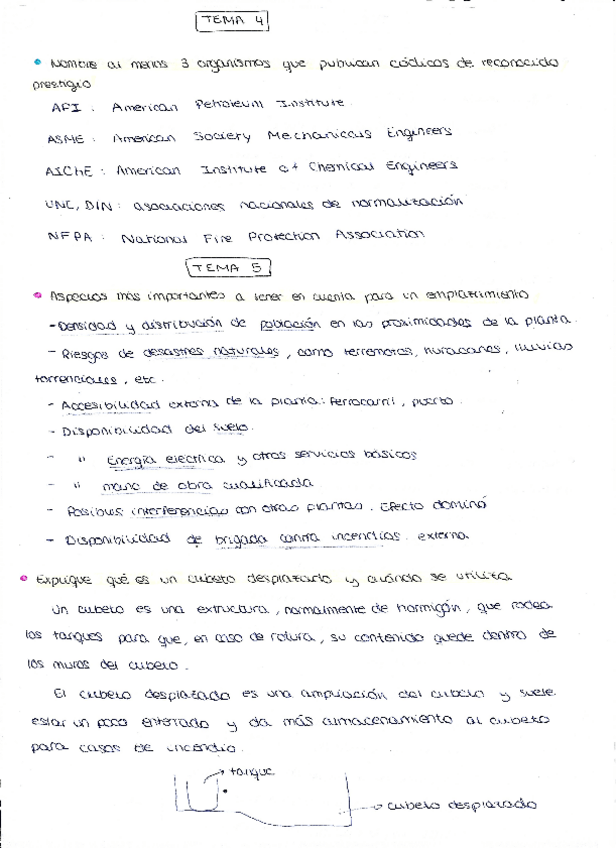 TEMA 4
• Nombre al menos 3 organismos que publican códicos de reconocido
prestigio
API : American Petroleum Institute.
ASME : American Society Mechanicus Engineers
AIChE : American Institute of Chemical Engineers
UNE, DIN : asociaciones nacionales de normalización
NFPA : National Fire Protection Association
TEMA 5
• Aspectos más importantes a tener en cuenta para un emplazamiento
- Densidad y distribución de población en las proximidades de la planta.
- Riesgos de desastres naturales, como terremotos, huracanes, lluvias
torrenciales, etc.
- Accesibilidad externa de la planta: Ferrocarril, puerto.
- Disponibilidad del suelo.
- " Energía electrica y otros servicios básicos
- " mano de obra cualificada
- Posibles interferencias con otras plantas. Efecto dominó
- Disponibilidad de brigada contra incendios externa.
• Explique qué es un cubeto desplazado y cuándo se utiliza
Un cubeto es una extructura, normalmente de hormigón, que rodea
los tanques para que, en caso de rotura, su contenido quede dentro de
los muros del cubeto.
El cubeto desplazado es una ampliación del cubeto y suele
estar un poco enterrado y da más almacenamiento al cubeto
para casos de incendio.
→ tanque
→ cubeto desplazado